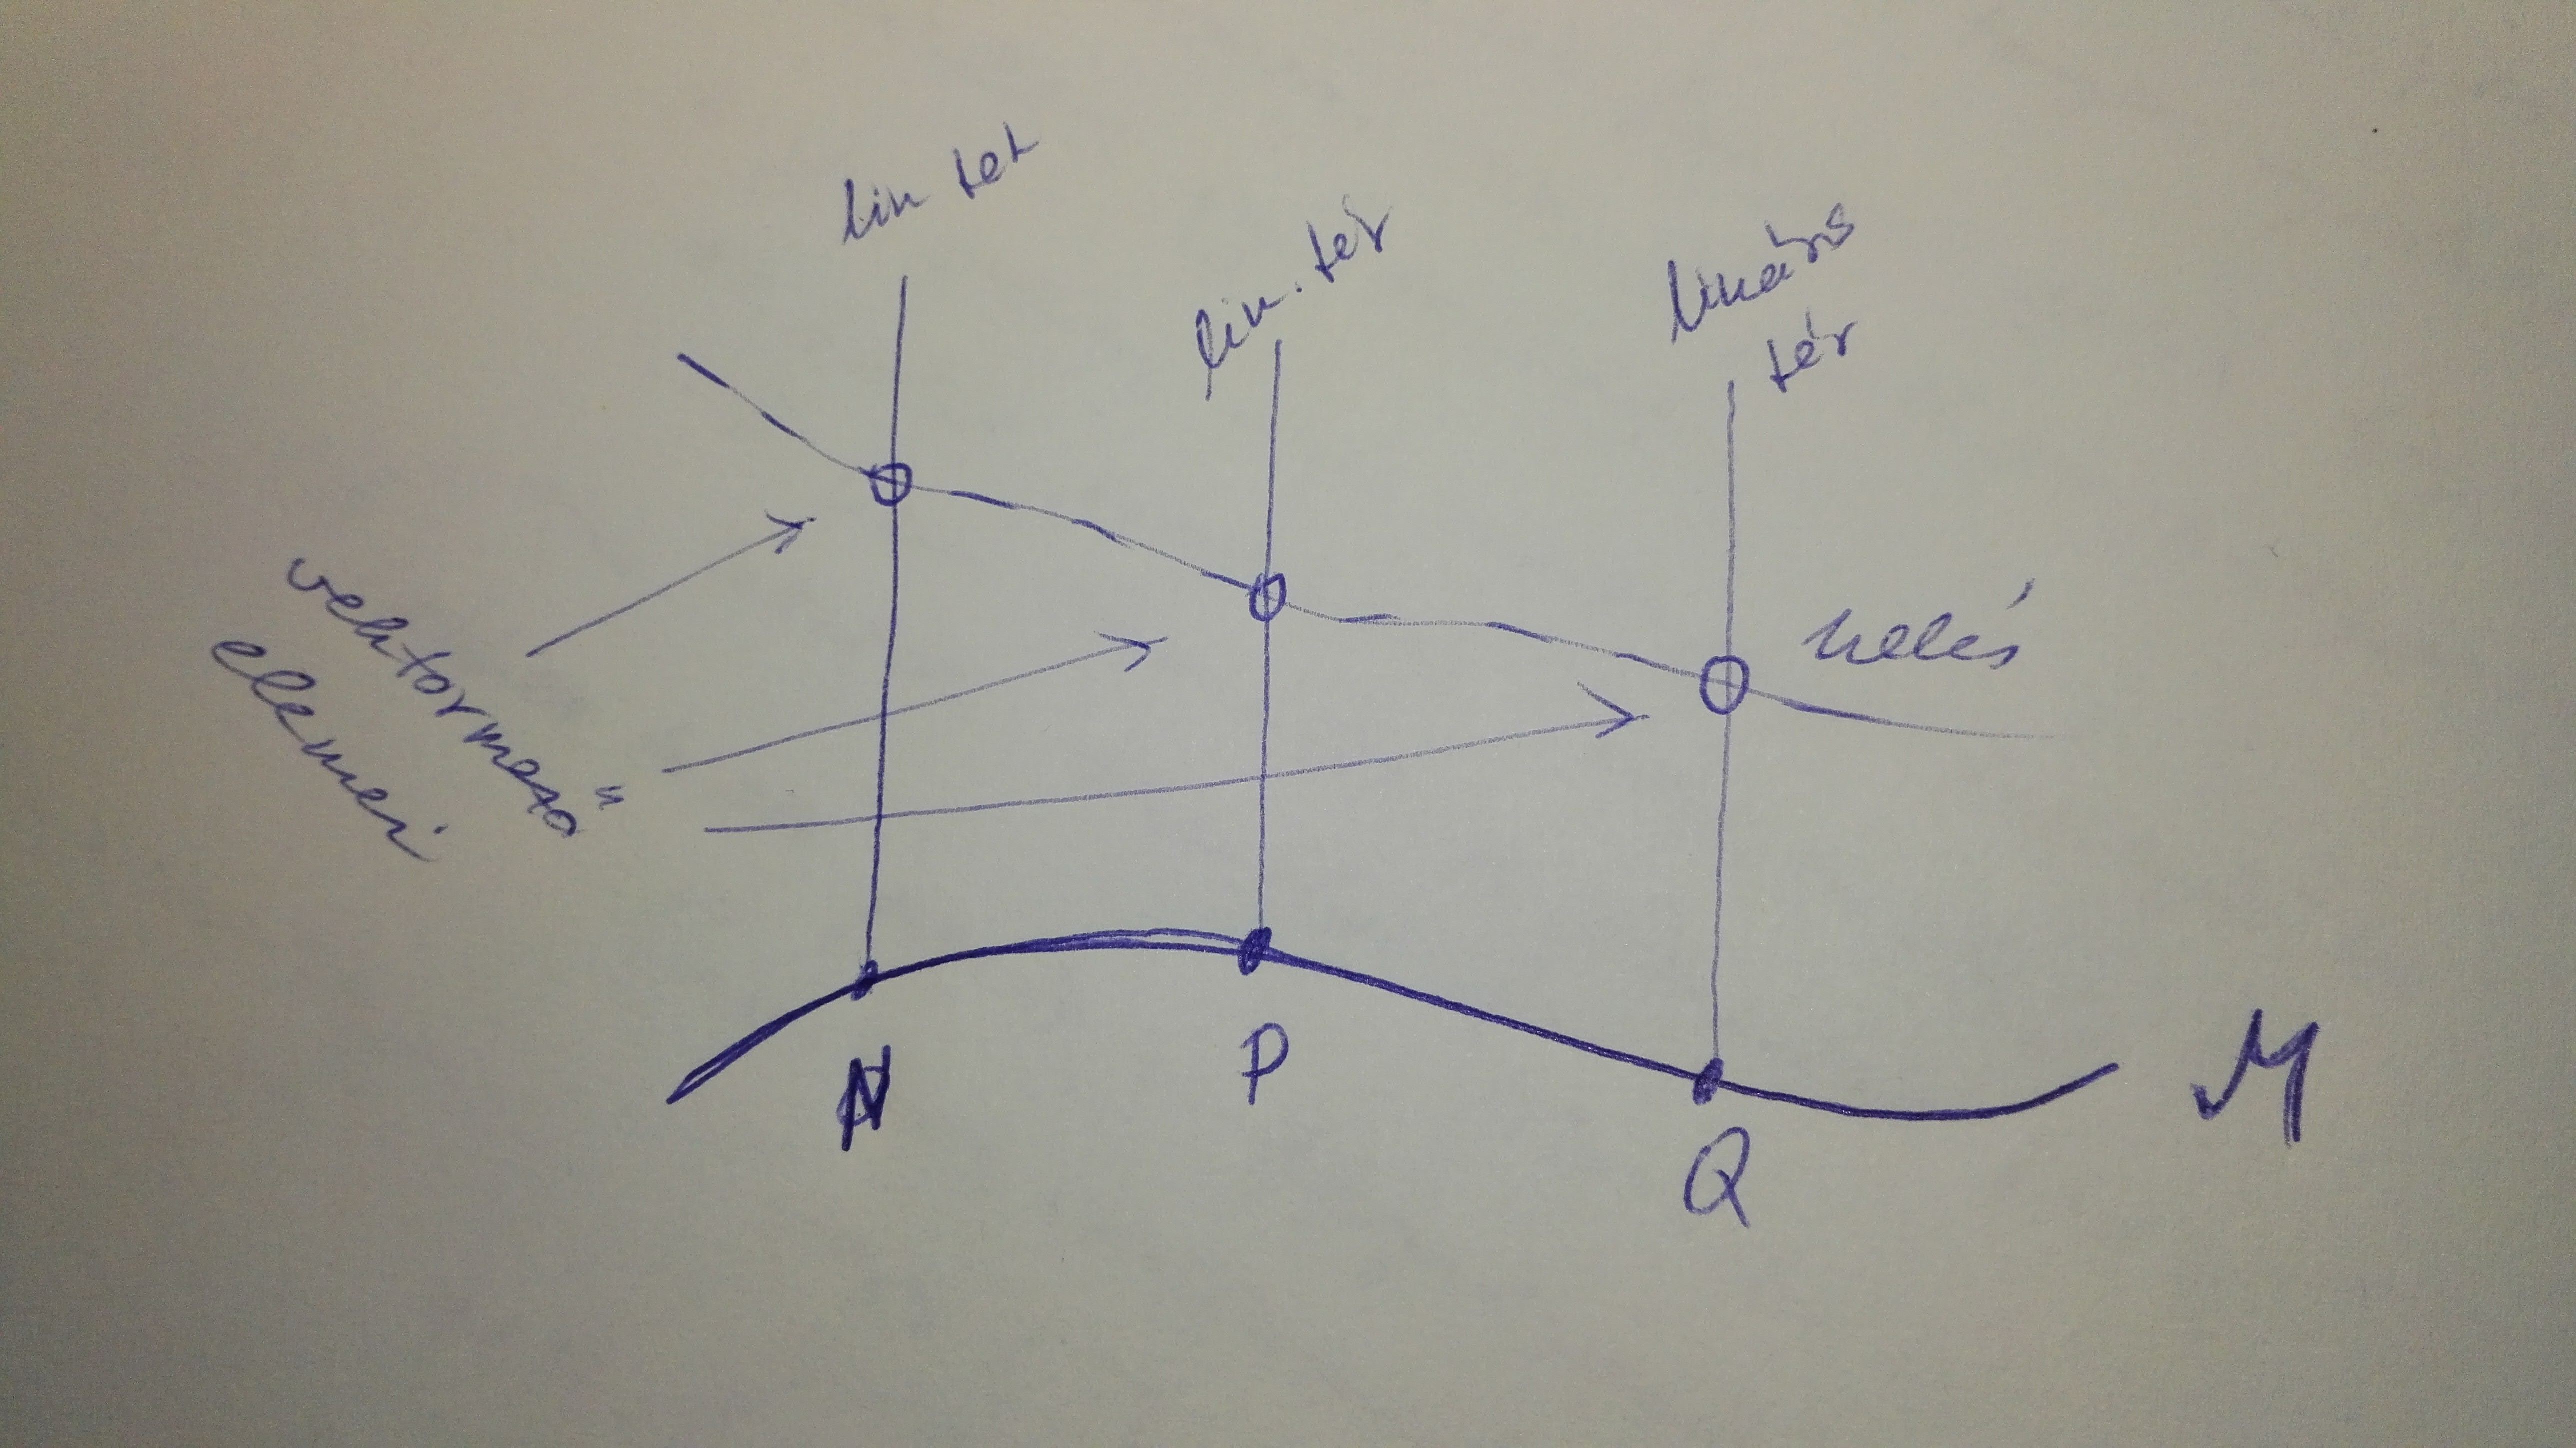 lin ter
lin. tér
lineáris
tér
vektormező
elemei
szelés
N
P
Q
M